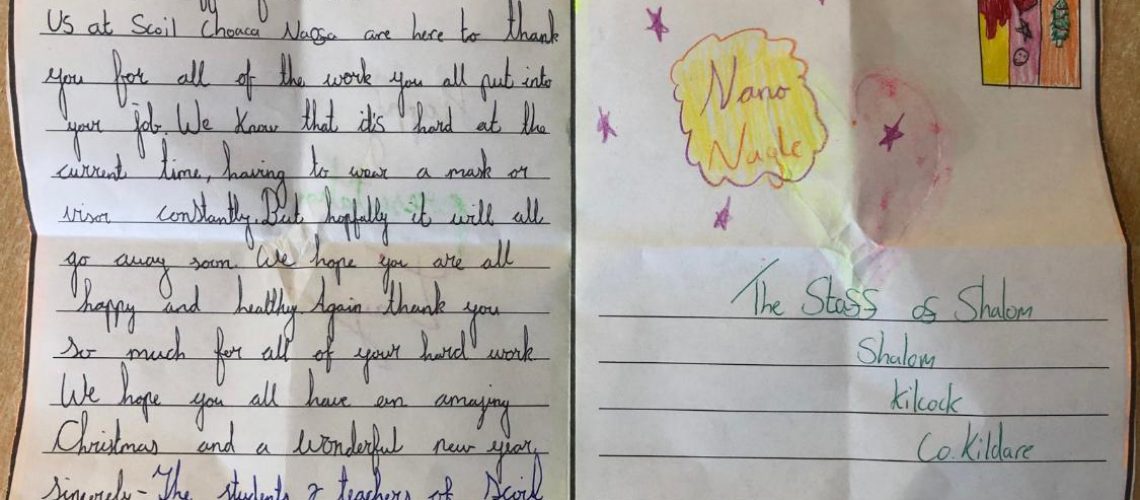 Us at Scoil Choaca Naosa are here to thank
you for all of the work you all put into
your job. We know that it's hard at the
current time, having to wear a mask or
visor constantly. But hopfally it will all
go away soon. We hope you are all
happy and healthy. Again thank you
so much for all of your hard work
We hope you all have an amazing
Christmas and a wonderful new year,
sincerely - The students & teachers of Scoil
Nano
Nagle
The Staff of Shalom
Shalom
Kilcock
Co. Kildare